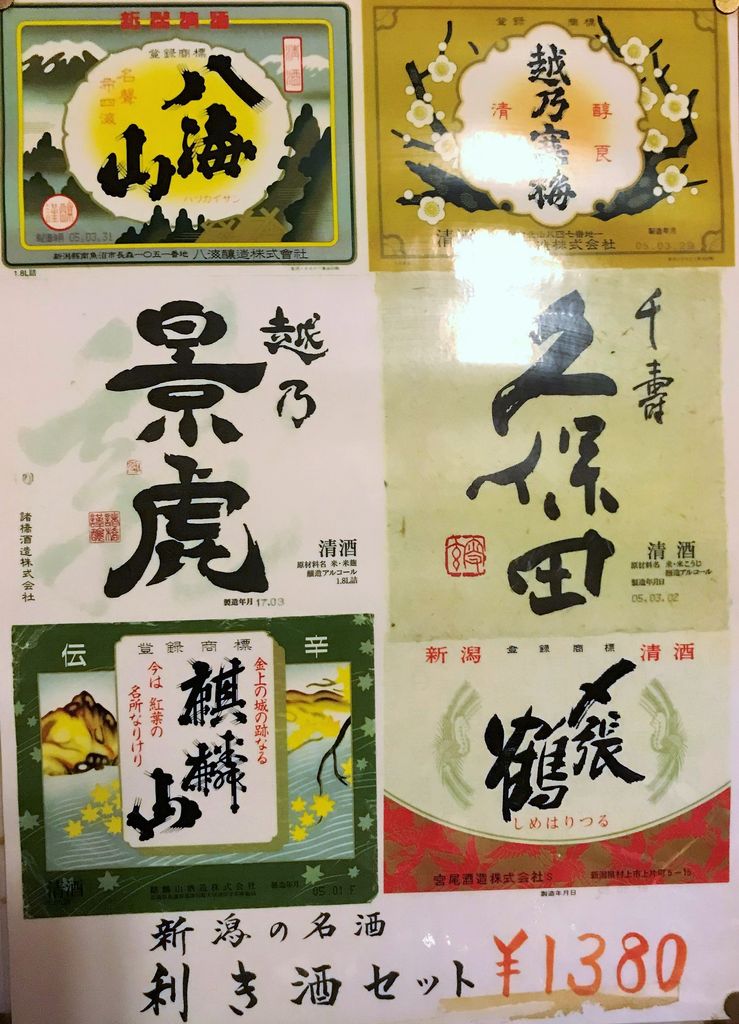 新潟清酒
登録商標
清酒
名聲
帝四濠
八海山
ハツカイサン
謹醸
製造年月 05.03.31
新潟縣南魚沼市長森一〇五一番地 八海醸造株式會社
1.8L詰
登録商標
越乃寒梅
清
醇良
清酒
製造年月
05.03.29
越乃
景虎
諸橋謹醸
諸橋酒造株式会社
清酒
原材料名 米・米麹
醸造アルコール
1.8L詰
製造年月 17.03
千壽
久保田
清酒
原材料名 米・米こうじ
醸造アルコール
製造年月日
05.03.02
伝 登録商標 辛
金上の城の跡なる
今は 紅葉の
名所なりけり
麒麟山
清酒
麒麟山酒造株式会社
製造年月
05.01
新潟 登録商標 清酒
〆張鶴
しめはりつる
宮尾酒造株式会社S 新潟県村上市上片町5-15
製造年月日
新潟の名酒
利き酒セット ¥1380